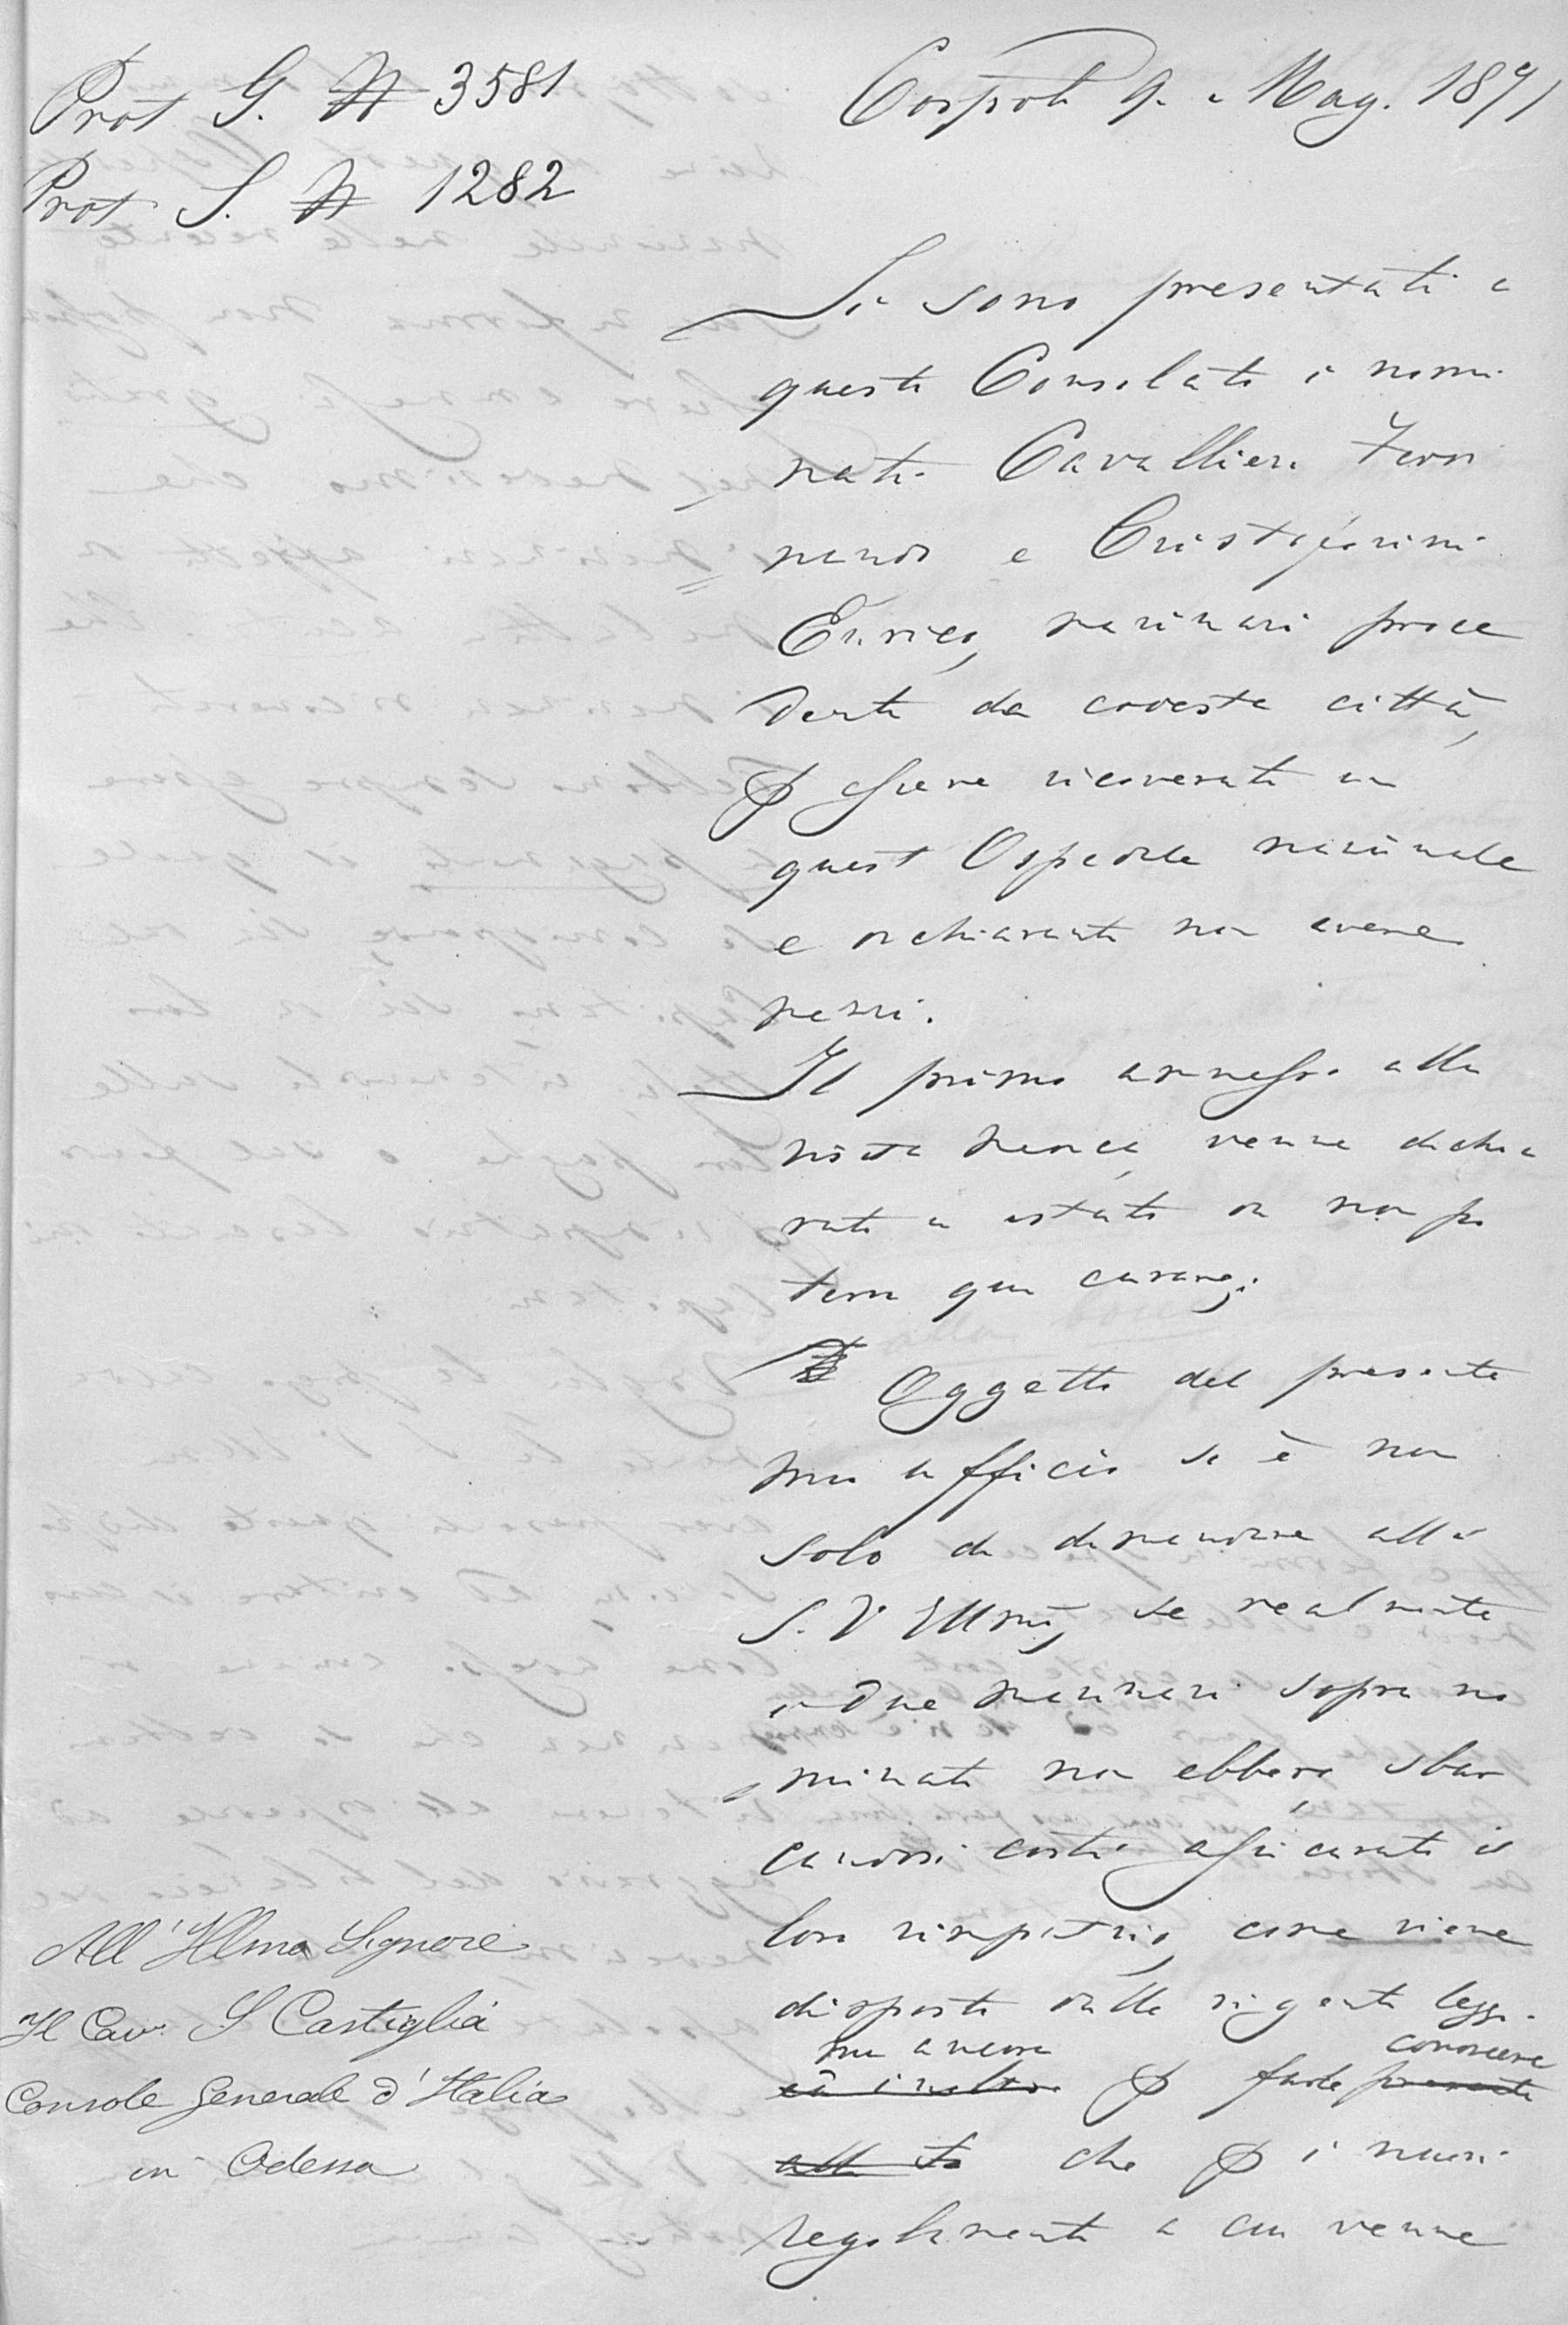 Prot G. N 3581
Prot S. N 1282
Cospoli 9. Mag. 1871
Si sono presentati a
questo Consolato i nomi
nati Cavallieri Ferdi
nando e Cristofarini
Enrico, marinari proce
denti da codesta città,
p essere ricoverati in
quest Ospedale nazionale
e dichiaranti non avere
mezzi.
Il primo ammesso alla
visita medica, venne dichia
rato in istato da non po
tersi qui curare;
Oggetto del presente
mio ufficio si è non
solo di dimandare alla
S. V Illma, se realmente
i due marinari sopra no
minati non ebbero, sbar
candosi costì assicurato il
loro rimpatrio, come viene
disposto dalle vigenti leggi.
ma ancora conoscere
ed inoltre p farle presente
alla che p i nuovi
regolamenti a cui venne
All'Illmo Signore
Il Cav. S Castiglia
Console Generale d'Italia
in Odessa